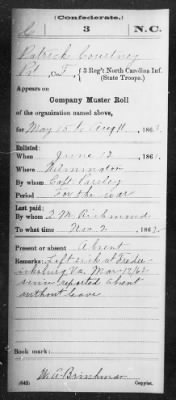 (Confederate.)
C 3 N.C.
Patrick Courtney
Pvt, Co. F, 3 Reg't North Carolina Inf.
(State Troops.)
Appears on
Company Muster Roll
of the organization named above,
for May 15 to Aug 11, 186
Enlisted:
When June 12, 186
Where Wilmington
By whom Capt. Parsley
Period For the war
Last paid:
By whom Richmond
To what time Nov 2, 186
Present or absent Absent
Remarks: Left sick at Freder-
icksburg Va. Mar 12/62
since reported absent
without leave
Book mark:
W. A. Brinkman
(642) Copyist.